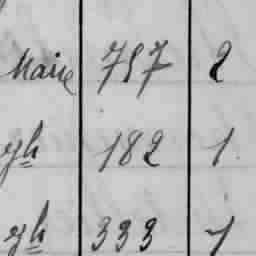 Maire 757 2
gh 182 1
gh 333 1